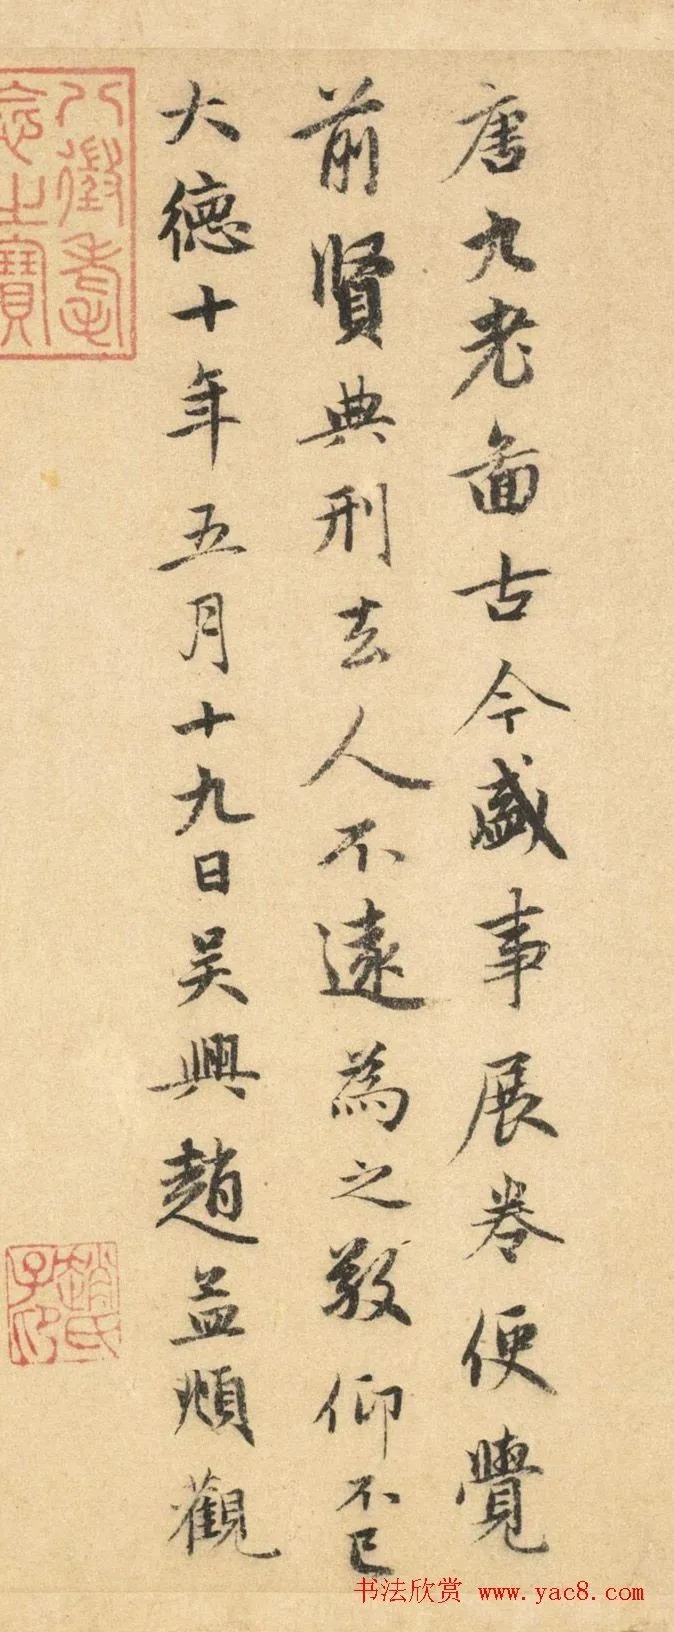 唐九老圖古今盛事展卷便覺
前賢典刑去人不遠為之敬仰不已
大德十年五月十九日吴興趙孟頫觀
八徵耄
念之寶
趙氏
子印
书法欣赏 www.yac8.com